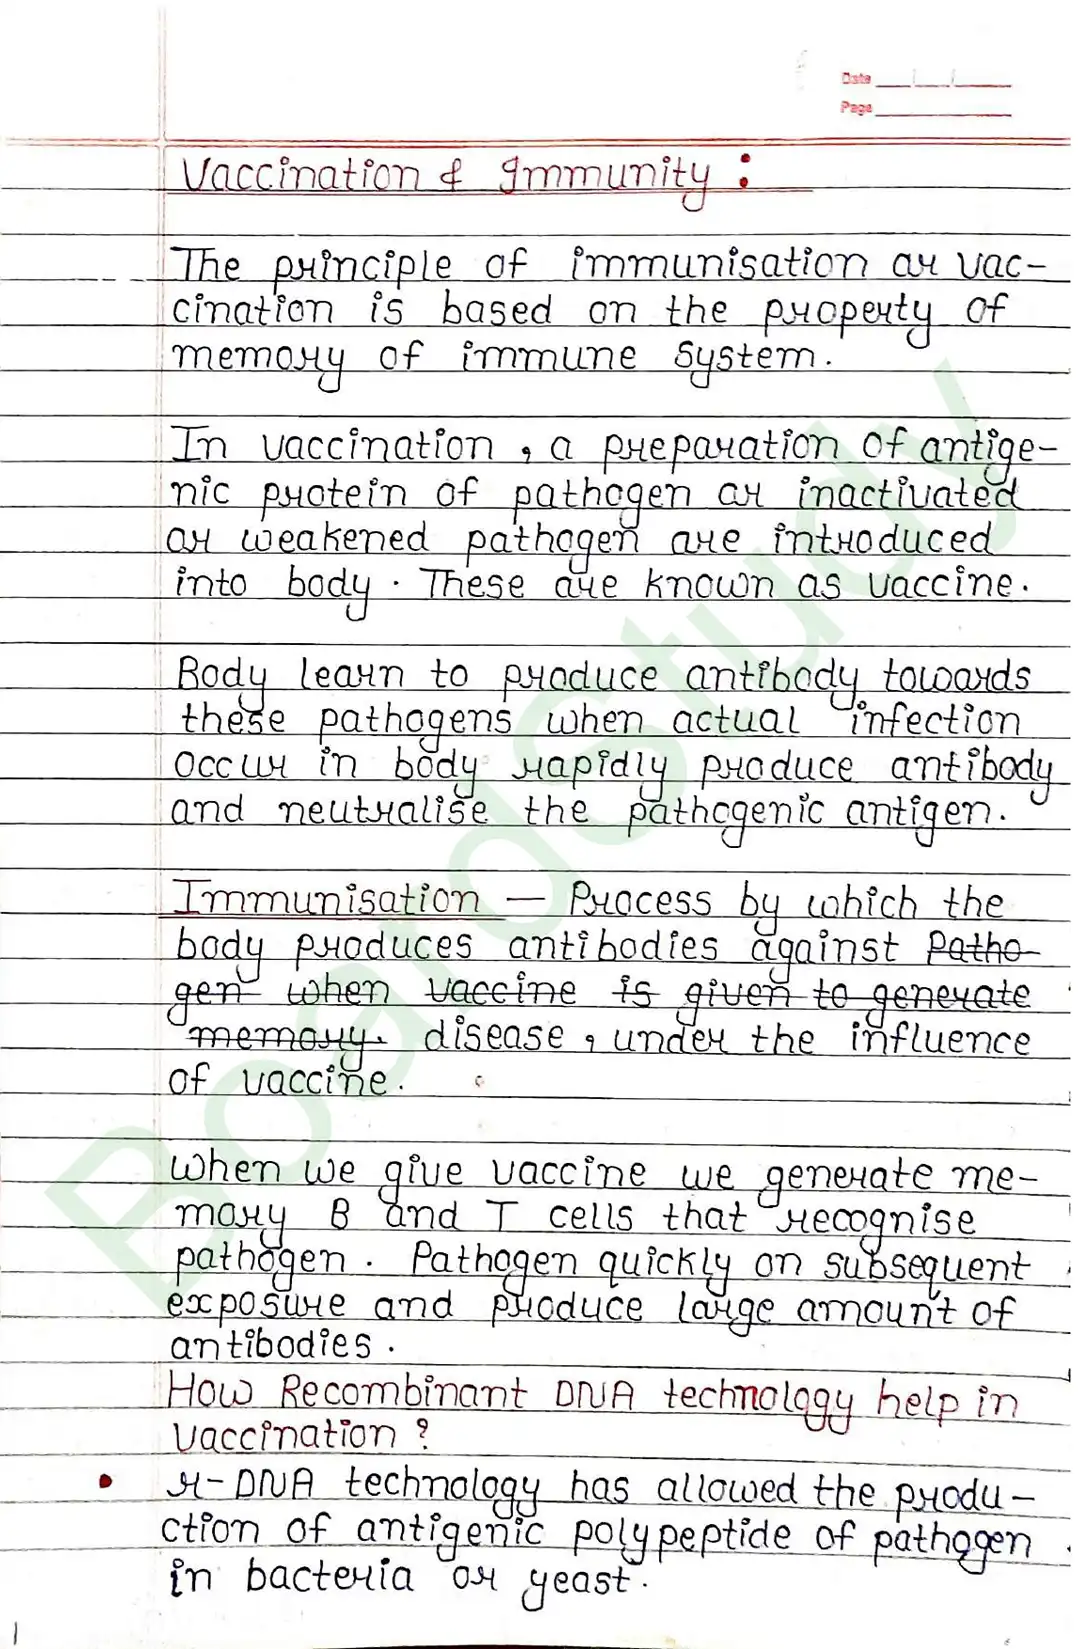 Date
Page
Vaccination & Immunity :
The principle of immunisation or vac-
cination is based on the property of
memory of immune system.
In vaccination, a preparation of antige-
nic protein of pathogen or inactivated
or weakened pathogen are introduced
into body. These are known as vaccine.
Body learn to produce antibody towards
these pathogens when actual infection
occur in body rapidly produce antibody
and neutralise the pathogenic antigen.
Immunisation — Process by which the
body produces antibodies against Patho-
gen when vaccine is given to generate
memory. disease, under the influence
of vaccine.
When we give vaccine we generate me-
mory B and T cells that recognise
pathogen. Pathogen quickly on subsequent
exposure and produce large amount of
antibodies.
How Recombinant DNA technology help in
Vaccination ?
• r-DNA technology has allowed the produ-
ction of antigenic polypeptide of pathogen
in bacteria or yeast.
BoardStudy